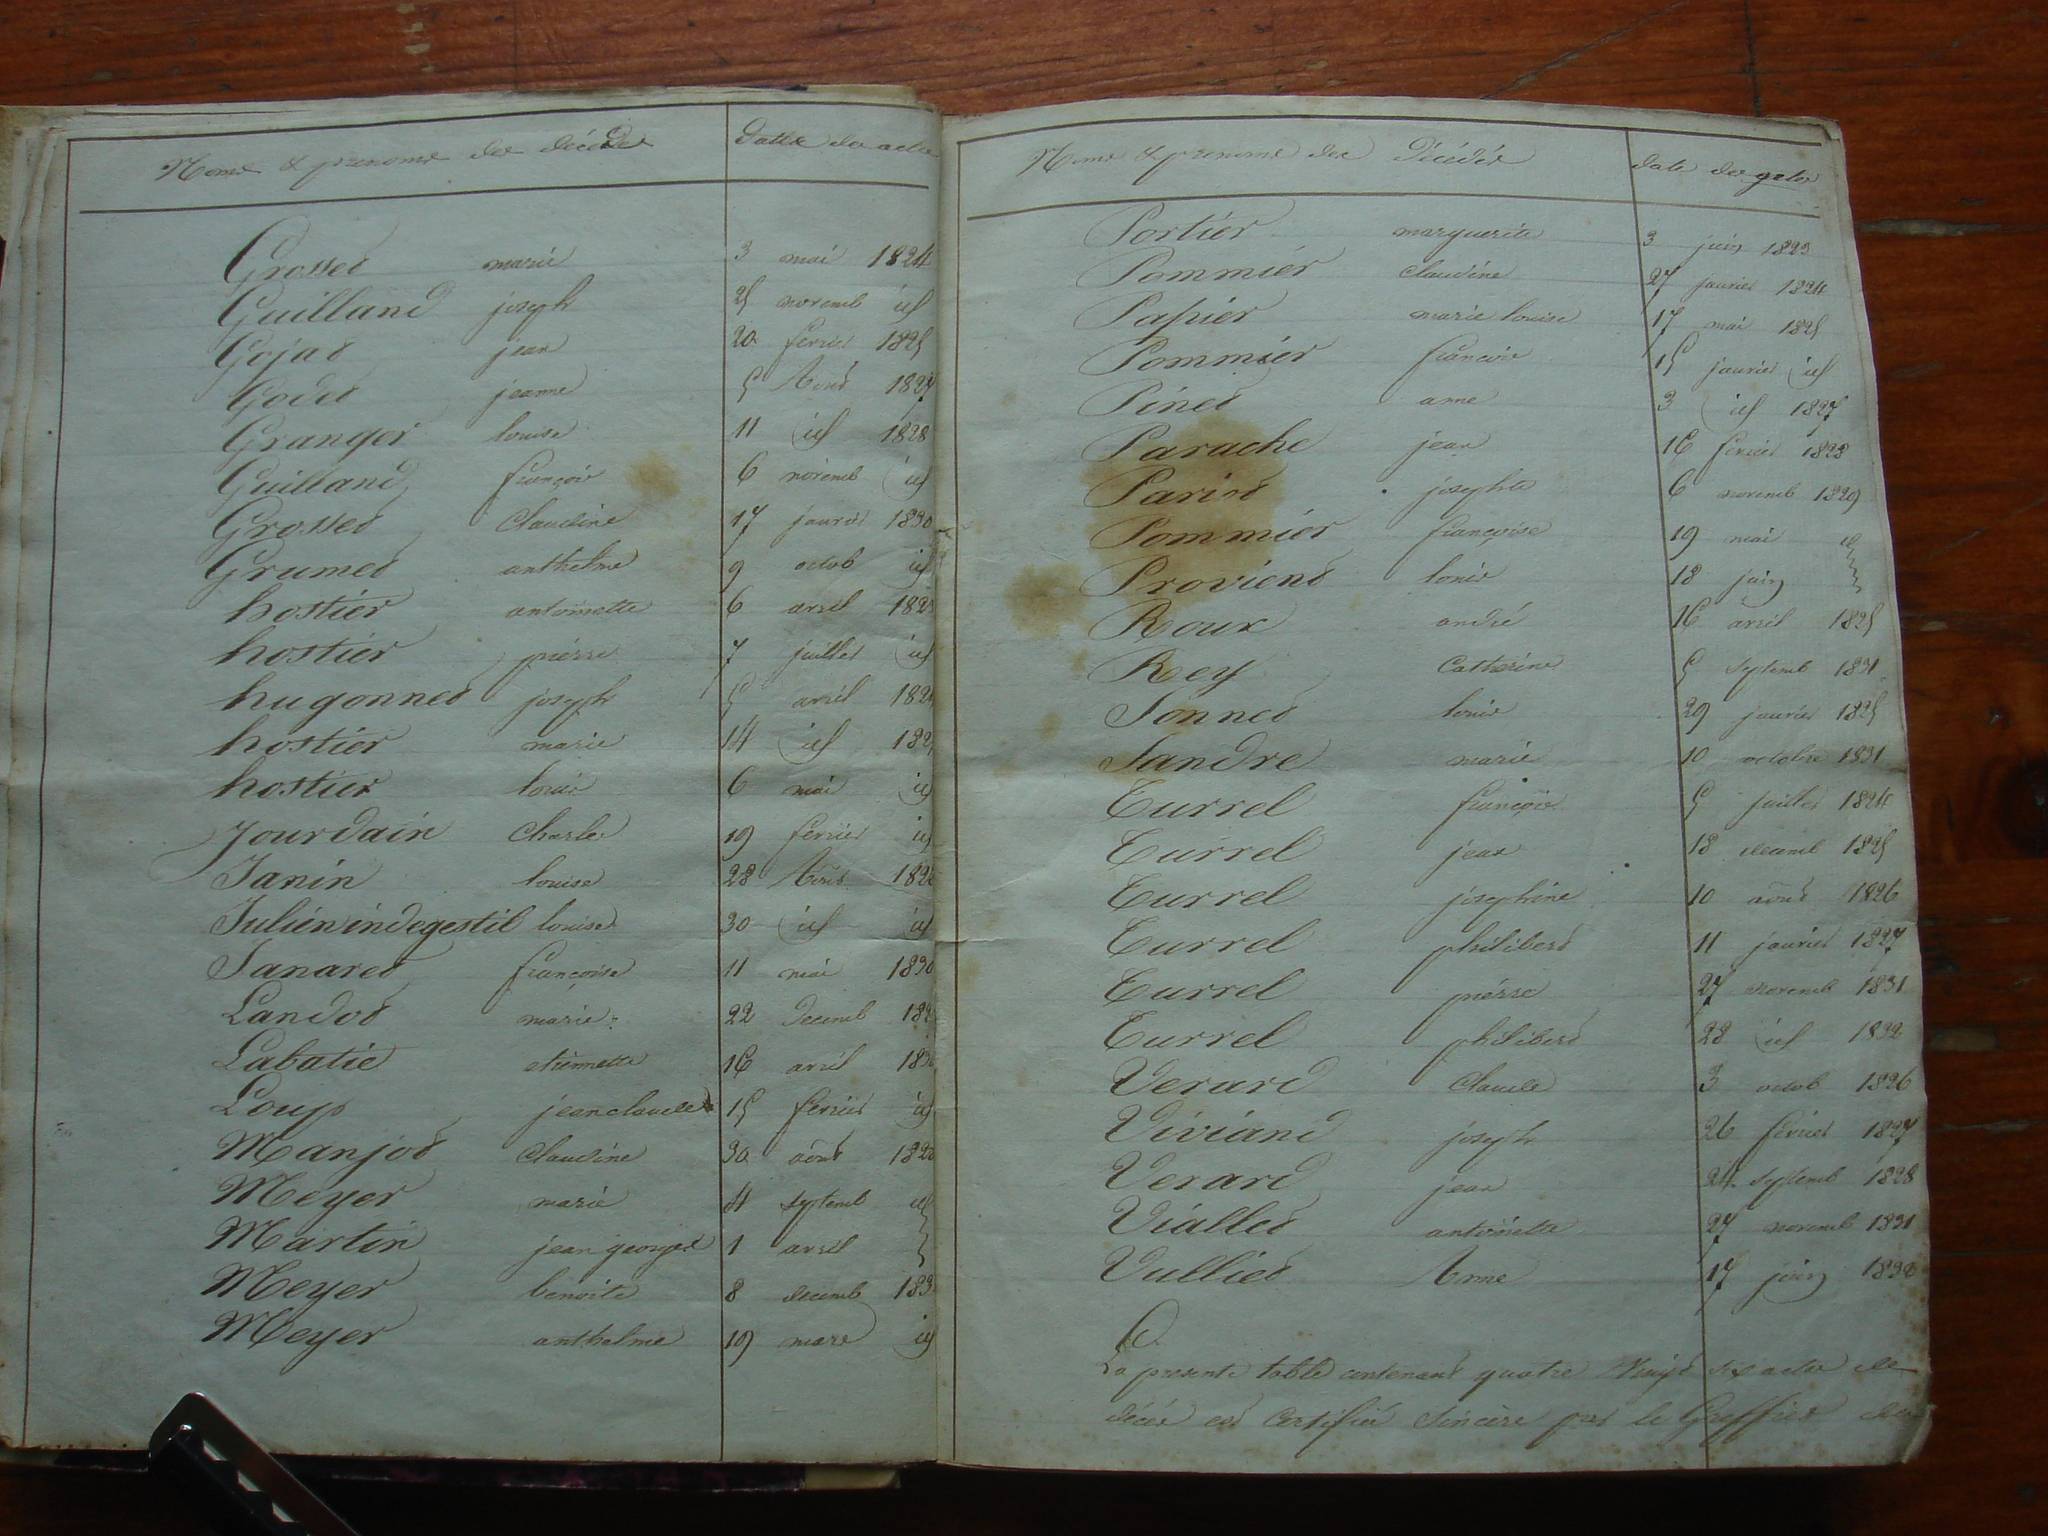 Noms & prenoms des décédés Dates des actes
Grosset marie 3 mai 1824
Guilland joseph 25 novemb id
Gojat jean 20 fevrier 1825
Godet jeanne 5 Aout 1827
Granger louise 11 id 1828
Guilland françois 6 novemb id
Grosset Claudine 17 janvier 1830
Grumet anthelme 9 octob id
hostier antoinette 6 avril
hostier pierre 7 juillet id
hugonnet joseph 5 avril
hostier marie 14 id
hostier louis 6 mai id
Jourdain Charles 19 fevrier id
Janin louise 28 Aout
Julien indegestil louise 30 id id
Janaret françoise 11 mai 1830
Landot marie 22 Decemb
Labatie etiennette 16 avril
Loup jean claude 15 fevrier id
Manjot Claudine 30 aout
Meyer marie 4 septemb id
Martin jean georges 1 avril
Meyer benoite 8 decemb
Meyer anthelme 19 mars id
Noms & prenoms des Décédés date des actes
Portier marguerite 3 juin 1823
Pommier Claudine 27 janvier 1824
Papier marie louise 17 mai 1825
Pommier francois 15 janvier id
Pinet anne 3 id 1827
Parache jean 16 fevrier 1828
Parist josephte 6 novemb 1829
Pommier françoise 19 mai id
Provient louis 18 juin
Roux andré 16 avril 1825
Rey Catherine 5 septemb 1831
Sonnet louis 29 janvier 1825
Sandre marie 10 octobre 1831
Turrel françois 5 juillet 1824
Turrel jean 18 decemb 1825
Turrel josephine 10 aout 1826
Turrel philibert 11 janvier 1827
Turrel pierre 27 novemb 1831
Turrel philibert 28 id 1832
Verard Claude 3 octob 1826
Viviand joseph 26 fevrier 1827
Verard jean 24 septemb 1828
Viallet antoinette 27 novemb 1831
Vulliet Anne 17 juin
La presente table contenant quatre Vingt six actes de
décés est Certifiée Sincère par le Greffier du